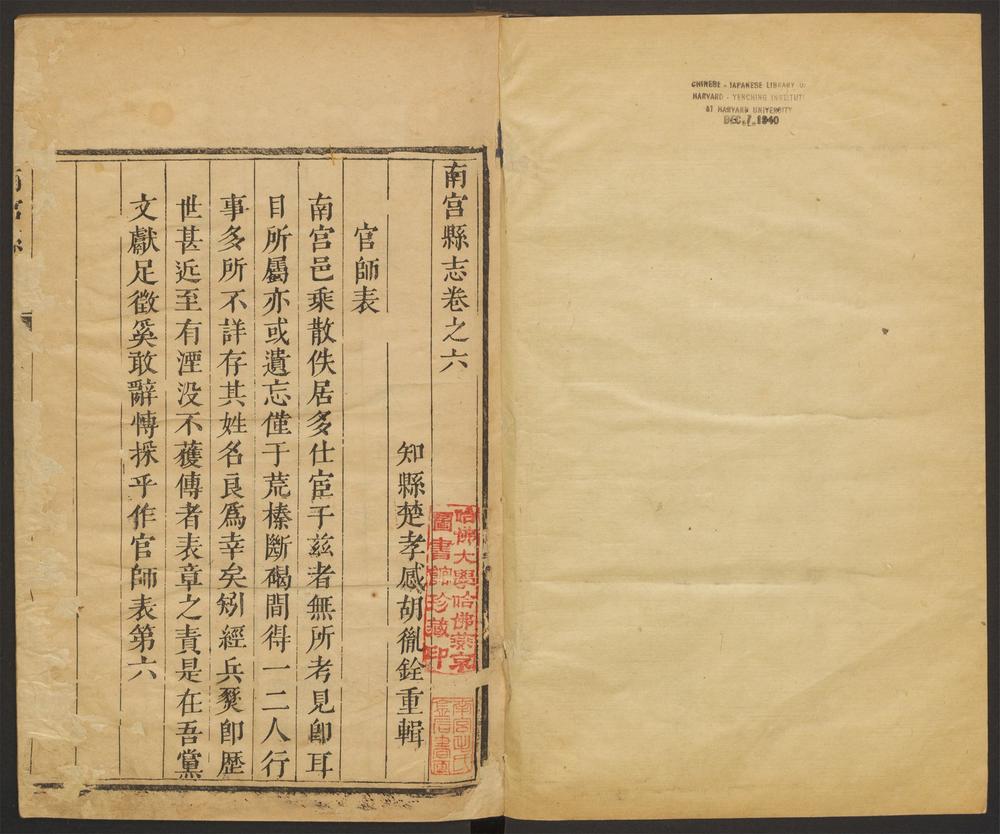 CHINESE - JAPANESE LIBRARY O
HARVARD - YENCHING INSTITUT
AT HARVARD UNIVERSITY
DEC 7 1940
南宮縣志卷之六
知縣楚孝感胡胤銓重輯
官師表
南宮邑乘散佚居多仕宦于兹者無所考見卽耳
目所屬亦或遺忘僅于荒榛斷碣間得一二人行
事多所不詳存其姓名良爲幸矣矧經兵燹卽歷
世甚近至有湮没不獲傳者表章之責是在吾黨
文獻足徵奚敢辭慱採乎作官師表第六
哈佛大學哈佛燕京
圖書館珍藏印
南宮